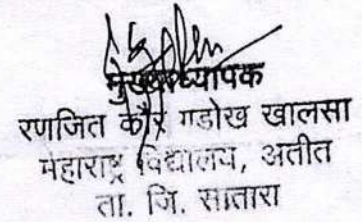 मुख्याध्यापक
रणजित कौर गडोख खालसा
महाराष्ट्र विद्यालय, अतीत
ता. जि. सातारा